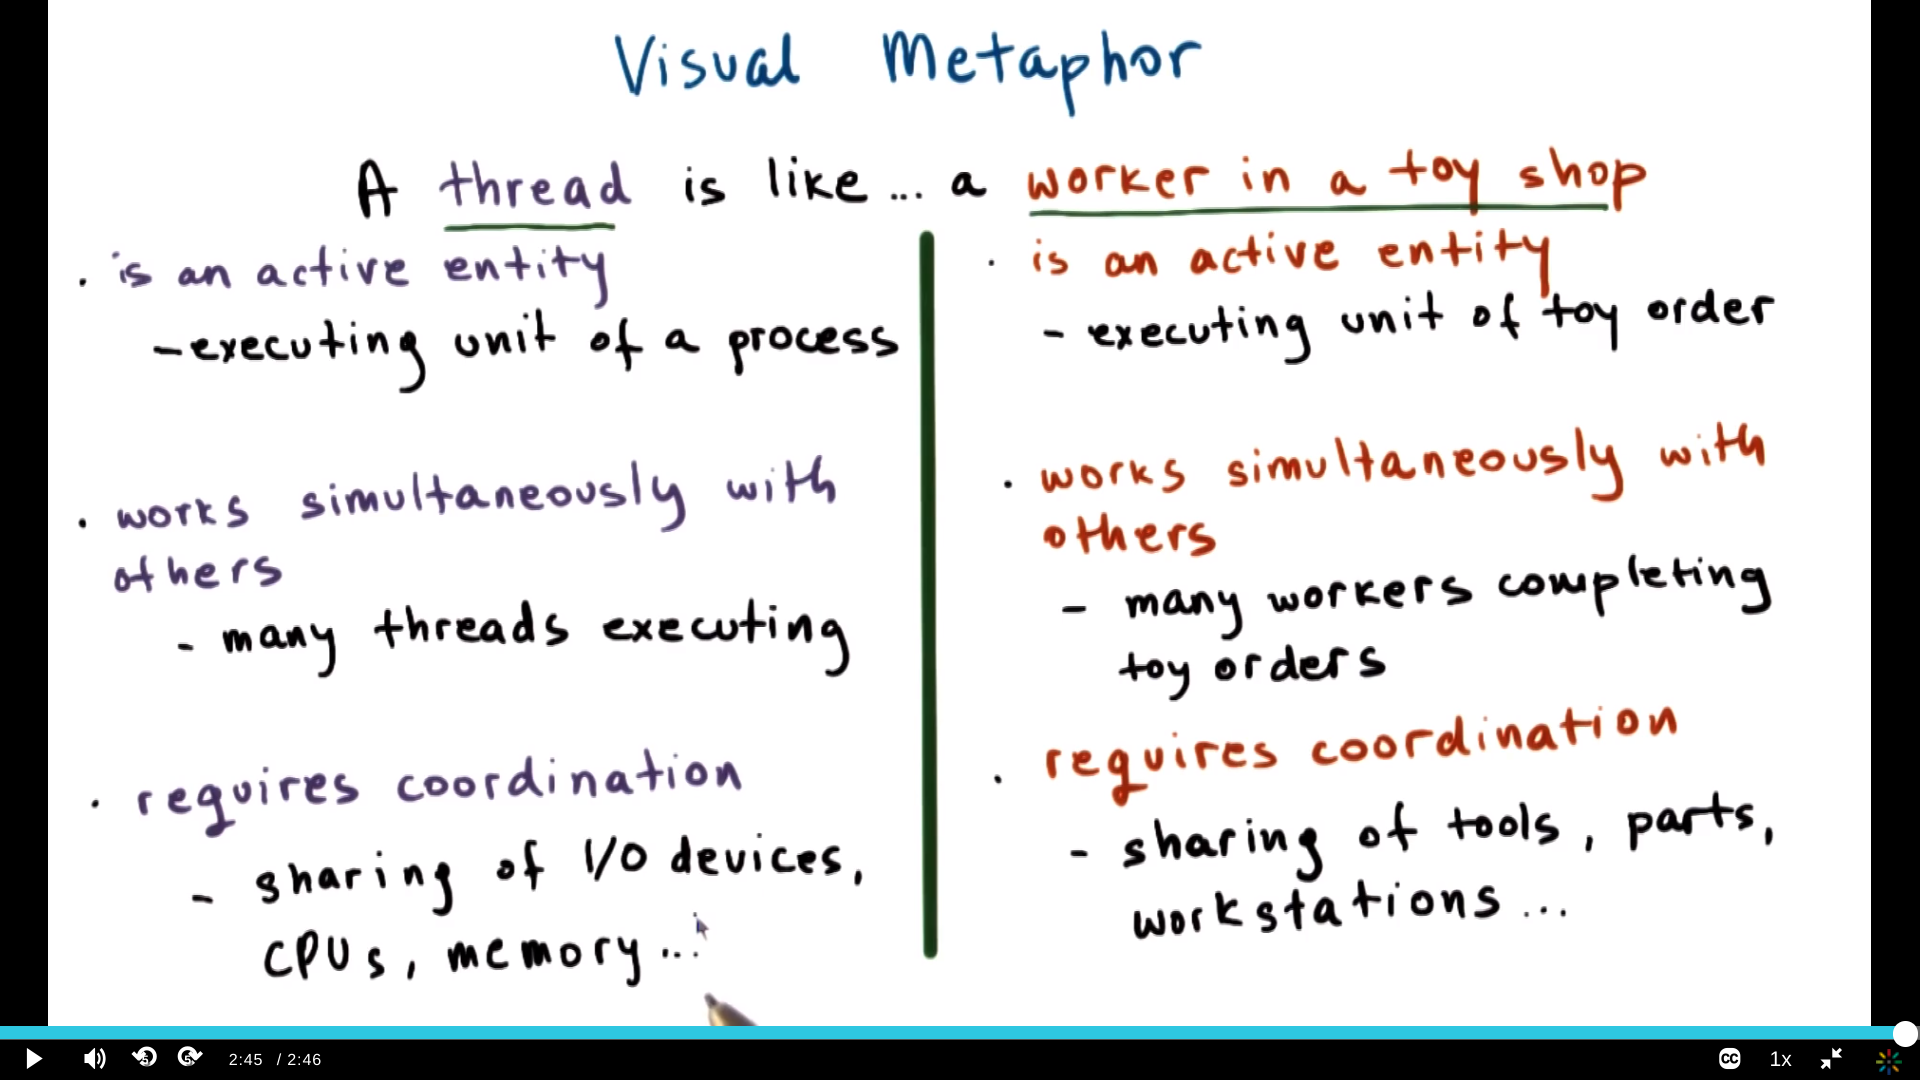 Visual Metaphor
A thread is like... a worker in a toy shop
. is an active entity
- executing unit of a process
. works simultaneously with
others
- many threads executing
. requires coordination
- sharing of I/O devices,
CPUs, memory...
. is an active entity
- executing unit of toy order
. works simultaneously with
others
- many workers completing
toy orders
. requires coordination
- sharing of tools, parts,
workstations...
2:45 / 2:46
CC
1x